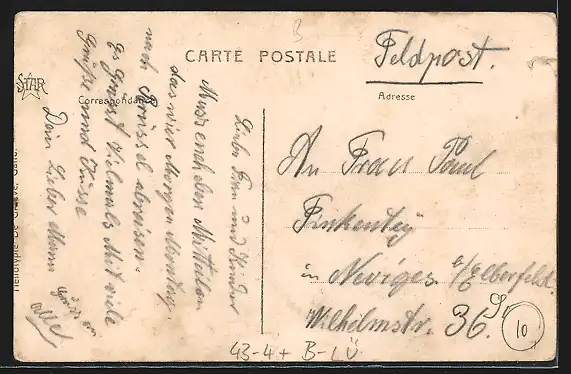 CARTE POSTALE
Feldpost.
STAR
Correspondance
Adresse
Liebe Frau und Kinder
Muss euch eben Mitteilen
das wir Morgen Montag
nach Brüssel abreisen.
Es grüsst Vilmals Mit viele
Grüße und Küsse
Dein Lieber Mann
Gruss an
alle
An Frau Paul
in Neviges b/Elberfeld.
Wilhelmstr. 36
10
43-4+ B-LÜ
Heliotypie De Graeve, Gand.